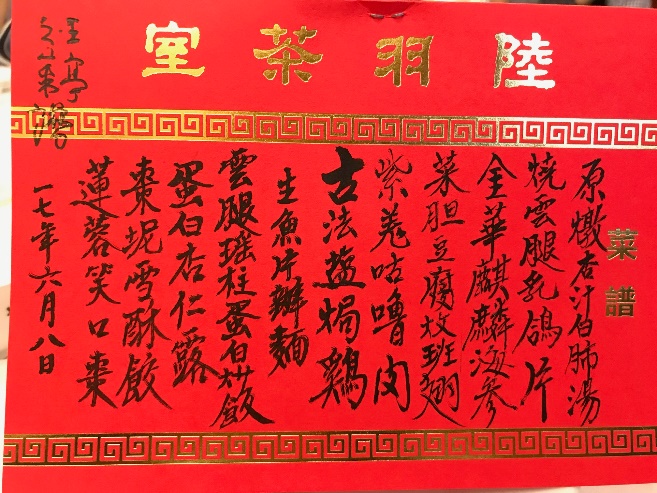 陸羽茶室
菜譜
原燉杏汁白肺湯
燒雲腿乳鴿片
全華麒麟海参
菜胆豆腐炆班翅
紫羗咕嚕肉
古法盬焗鷄
生魚片瓣麵
雲腿瑶柱蛋白炒飯
蛋白杏仁露
棗坭雪酥餃
蓮蓉笑口棗
一七年六月八日